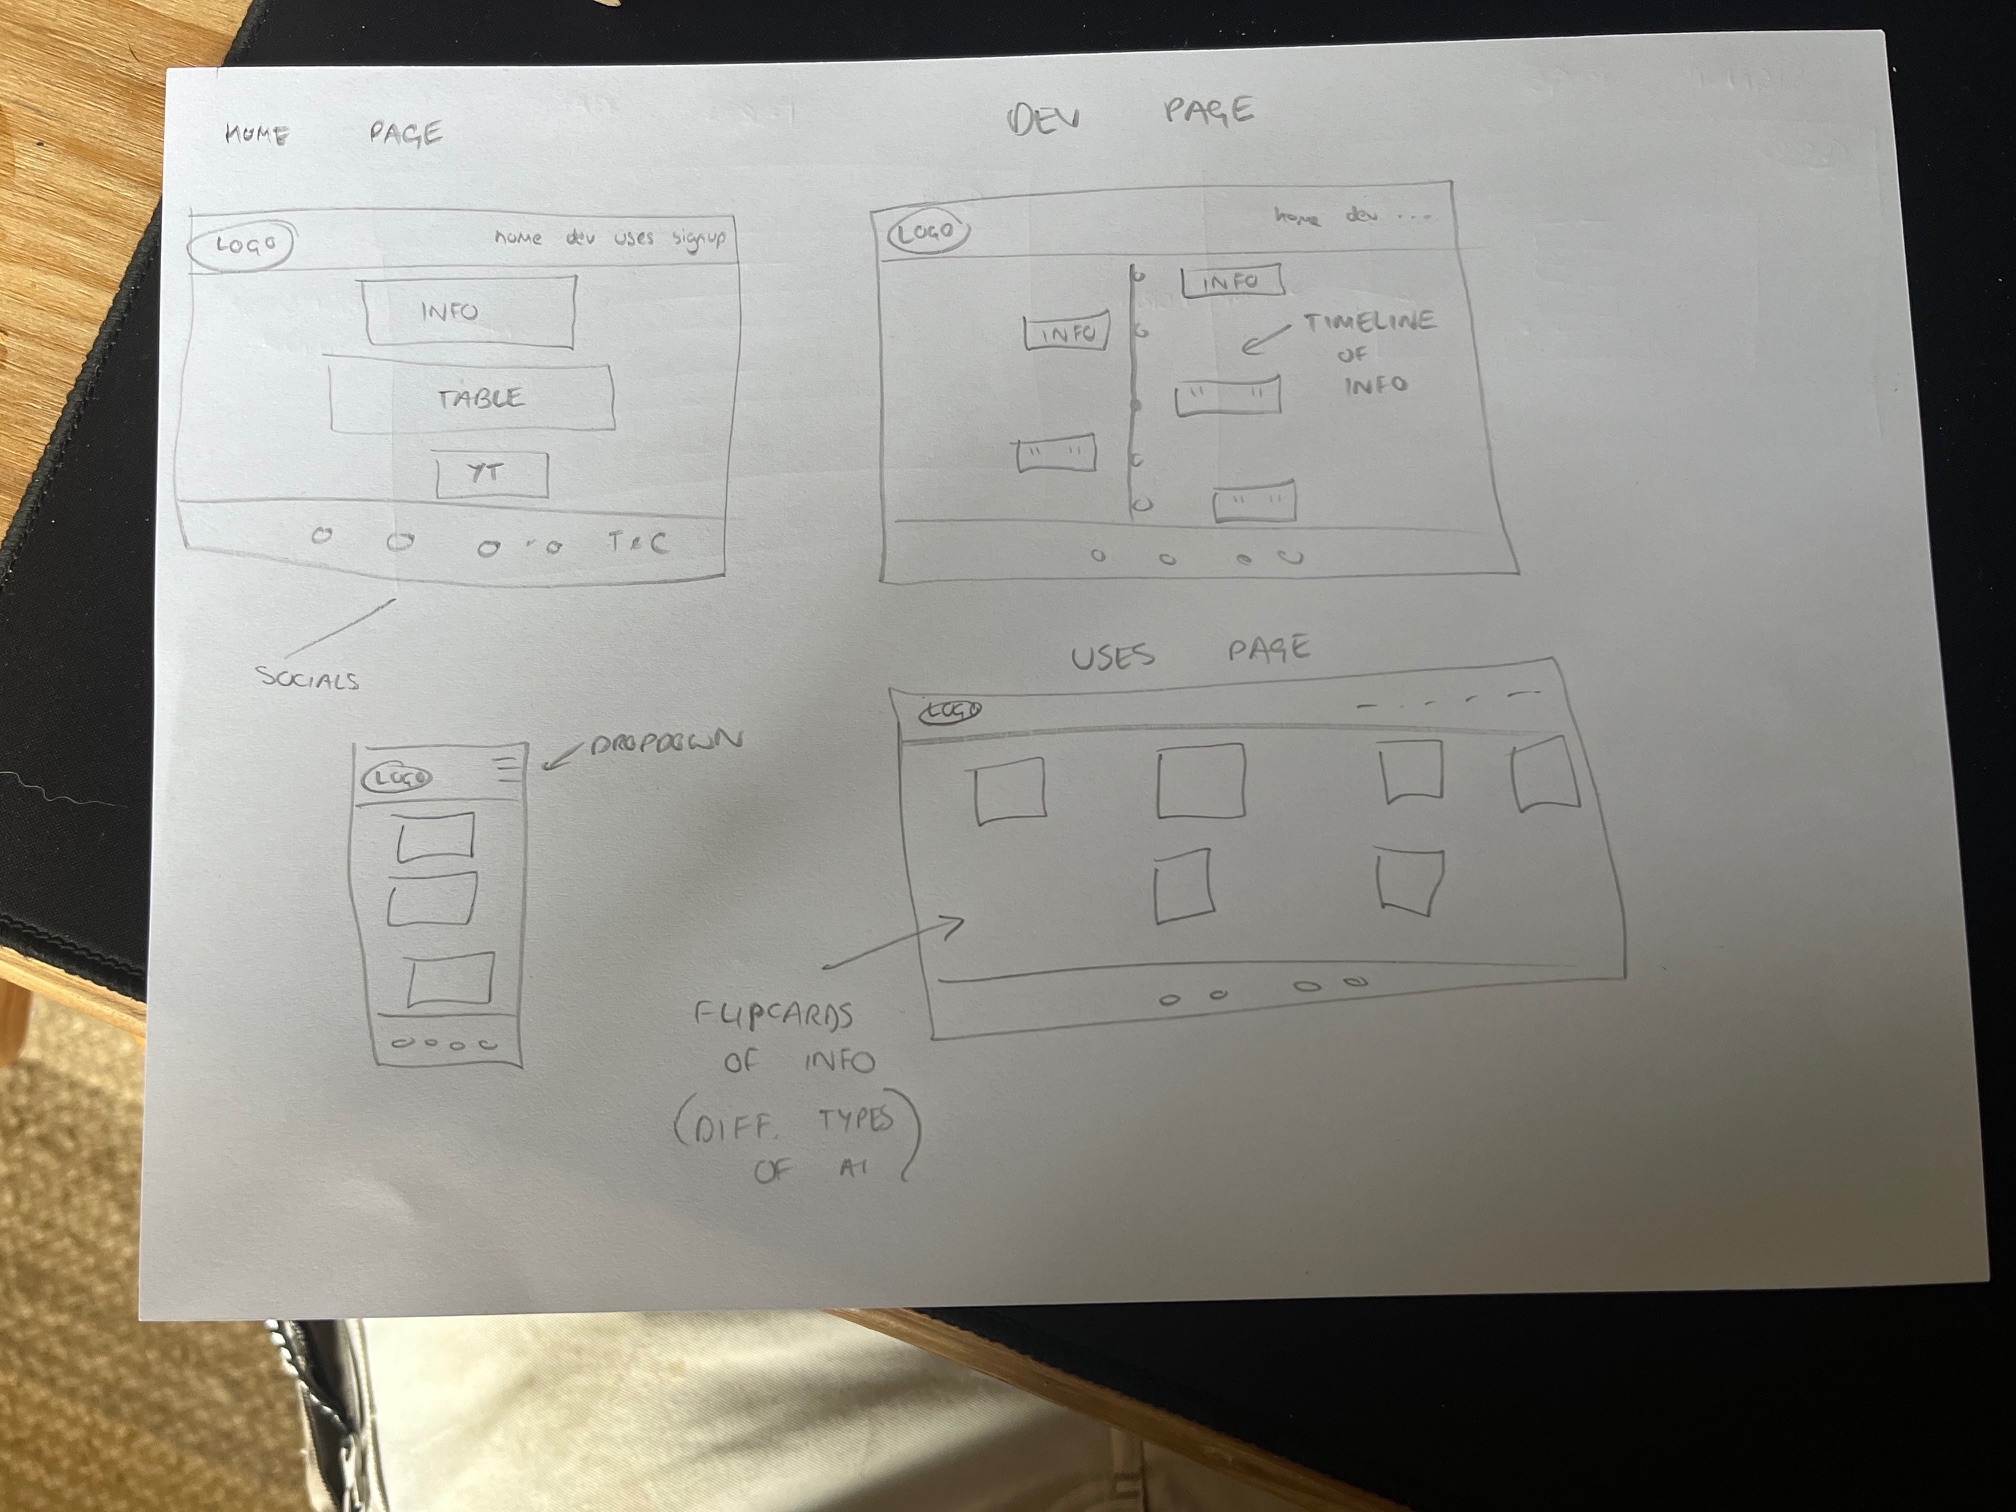 HOME PAGE
LOGO
home dev uses signup
INFO
TABLE
YT
T&C
SOCIALS
DEV PAGE
LOGO
home dev ...
INFO
INFO
TIMELINE
OF
INFO
" "
" "
" "
LOGO
DROPDOWN
USES PAGE
LOGO
FLIPCARDS
OF INFO
(DIFF. TYPES
OF AI)